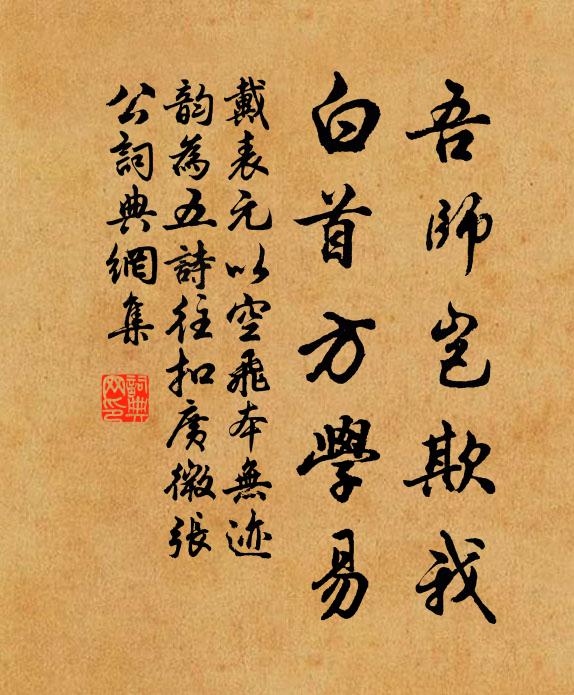 吾師豈欺我
白首方學易
戴表元以空飛本無迹
韵為五詩往扣廣微張
公詞典網集
詞典網印